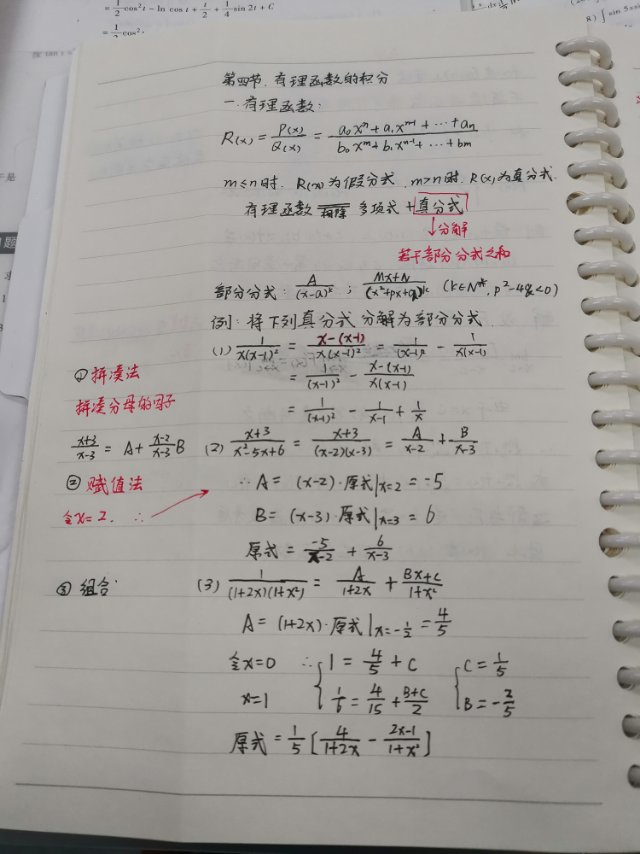 = 1/2 cos²t - ln cos t + t/2 + 1/4 sin 2t + C
第四节. 有理函数的积分
一. 有理函数:
R(x) = P(x)/Q(x) = (a₀xⁿ + a₁xⁿ⁻¹ + … + aₙ)/(b₀xᵐ + b₁xⁿ⁻¹ + … + bm)
m≤n时. R(x)为假分式. m>n时. R(x)为真分式.
有理函数 相除 多项式 + 真分式
↓分解
若干部分分式之和
部分分式: A/(x-a)ᵏ ; (Mx+N)/(x²+px+q)ᵏ (k∈N*, p²-4q<0)
例: 将下列真分式分解为部分分式.
(1) 1/(x(x-1)²) = (x-(x-1))/(x(x-1)²) = 1/(x-1)² - 1/(x(x-1))
① 拼凑法
= 1/(x-1)² - (x-(x-1))/(x(x-1))
拼凑分母的因子
= 1/(x-1)² - 1/(x-1) + 1/x
(x+3)/(x-3) = A + (x-2)/(x-3) B
(2) (x+3)/(x²-5x+6) = (x+3)/((x-2)(x-3)) = A/(x-2) + B/(x-3)
② 赋值法
∴ A = (x-2)·原式|x=2 = -5
令x=2. ∴
B = (x-3)·原式|x=3 = 6
原式 = -5/(x-2) + 6/(x-3)
③ 组合.
(3) 1/((1+2x)(1+x²)) = A/(1+2x) + (Bx+C)/(1+x²)
A = (1+2x)·原式|x=-1/2 = 4/5
令x=0 ∴ { 1 = 4/5 + C { C = 1/5
x=1 1/6 = 4/15 + (B+C)/2 B = -2/5
原式 = 1/5 [4/(1+2x) - (2x-1)/(1+x²)]